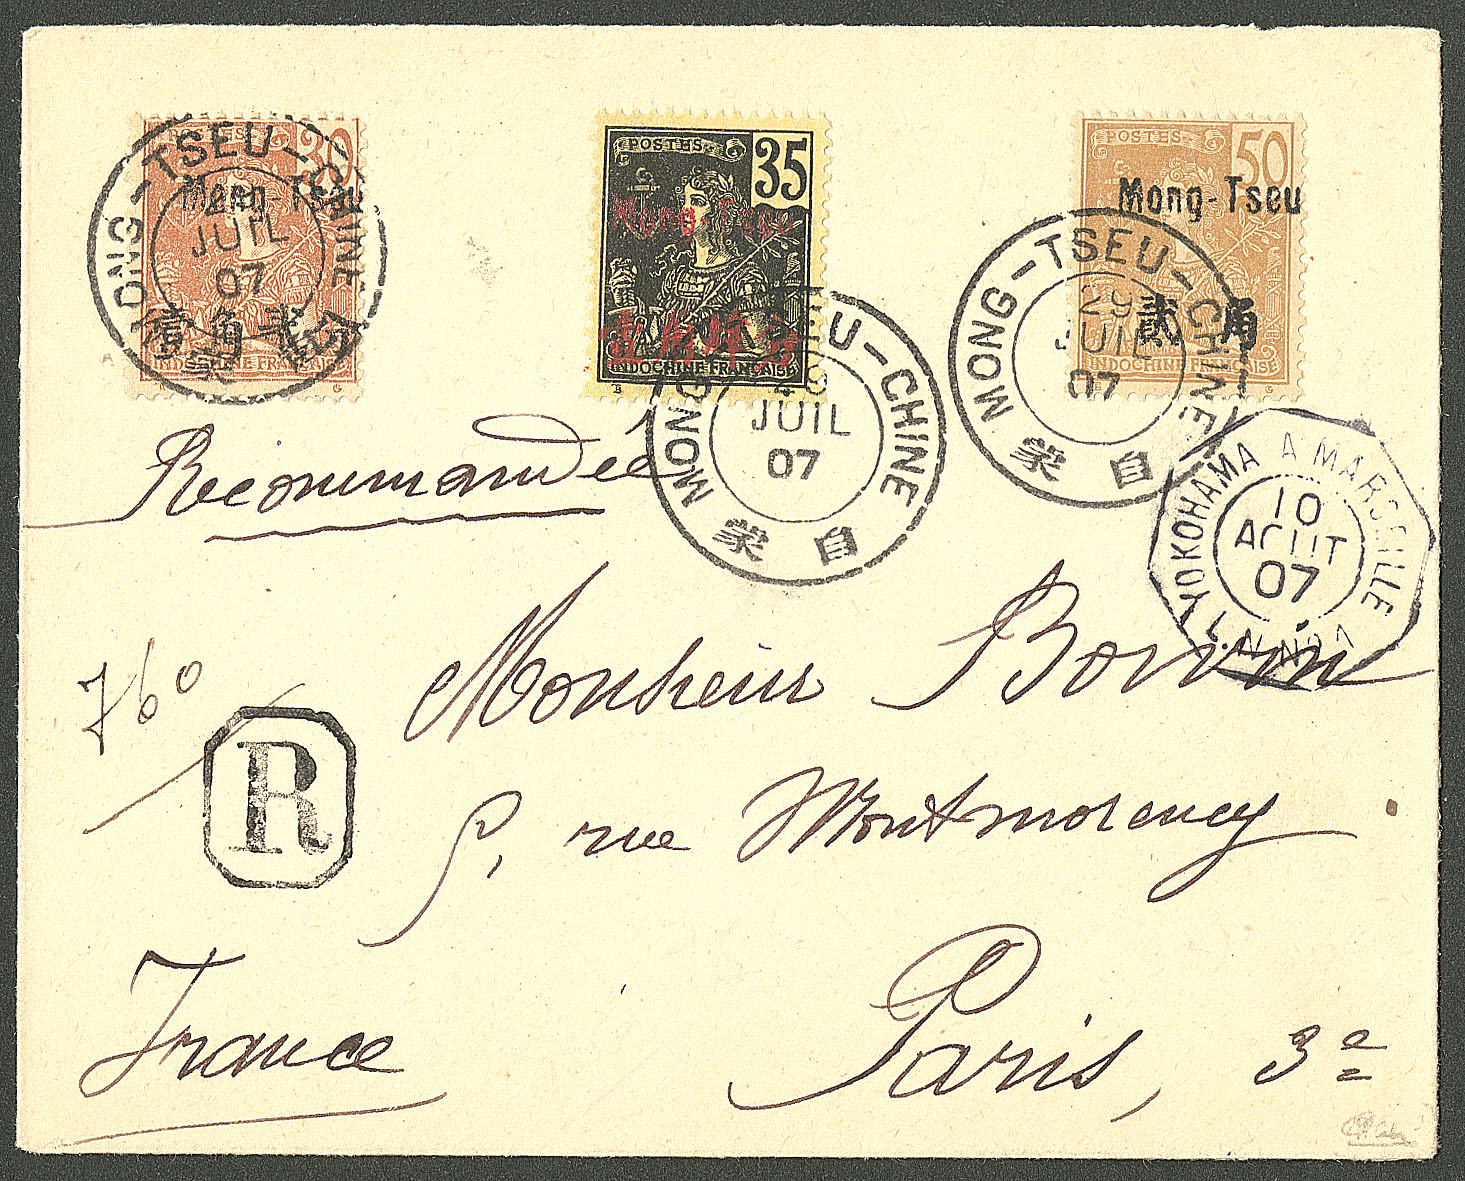 POSTES 30
Mong-Tseu
INDOCHINE FRANÇAISE
MONG-TSEU-CHINE
JUIL
07
POSTES 35
Mong-Tseu
INDOCHINE FRANÇAISE
MONG-TSEU-CHINE
JUIL
07
蒙 自
POSTES 50
Mong-Tseu
貳 角
INDOCHINE FRANÇAISE
MONG-TSEU-CHINE
29
JUIL
07
蒙 自
Recommandée
YOKOHAMA A MARSEILLE
10
AOUT
07
L.N N°1
760
R
Monsieur Boivin
5, rue Montmorency
Paris, 3e
France